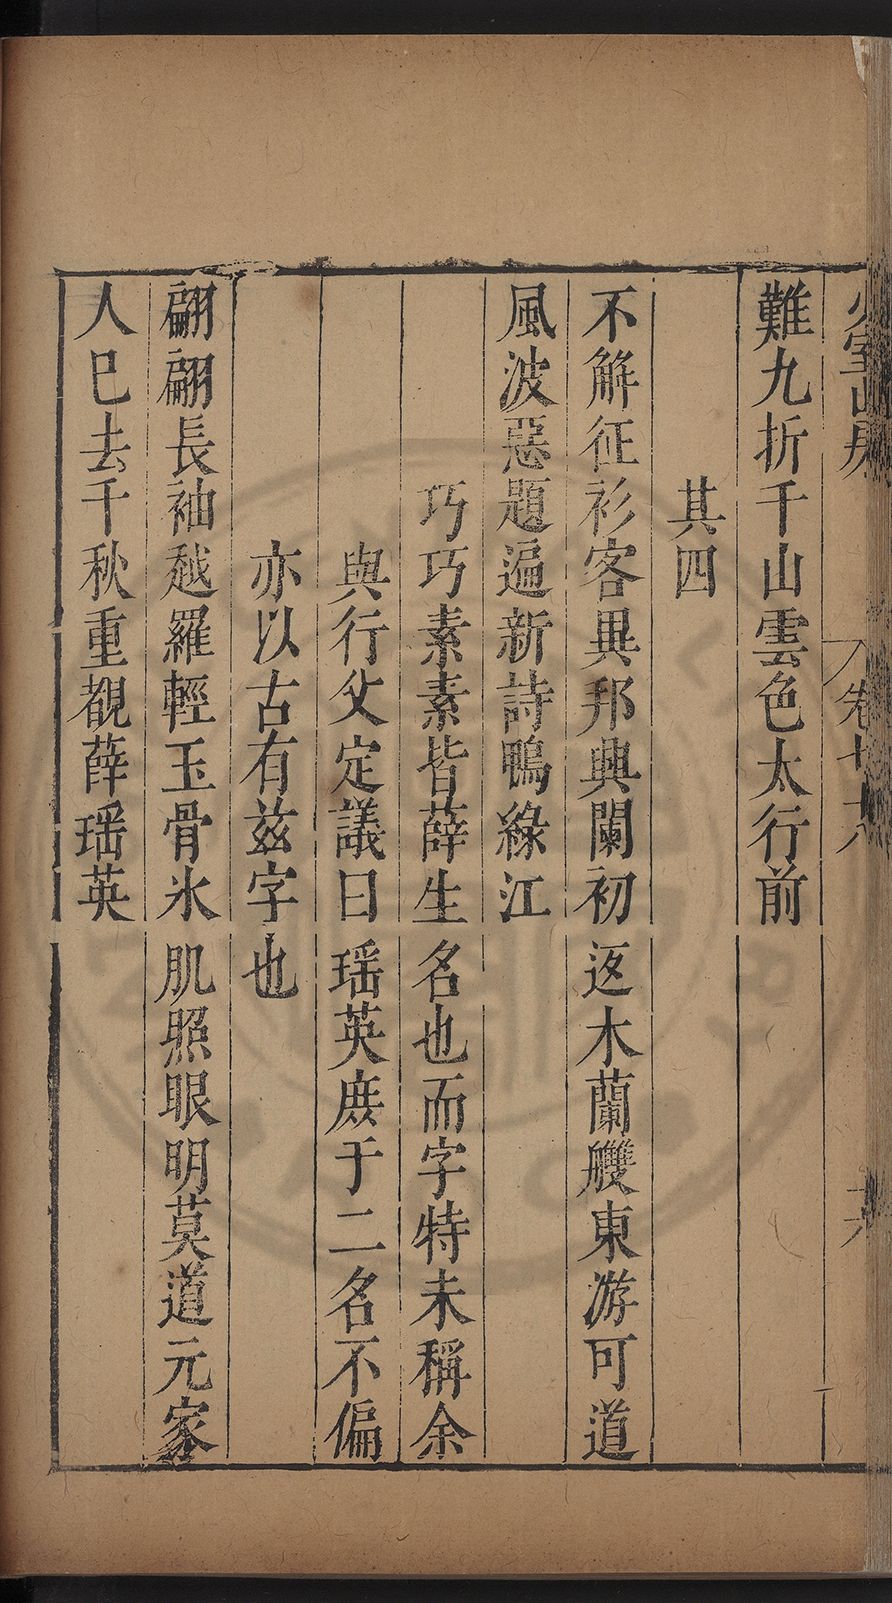 少室山房 卷七十六
難九折千山雲色太行前
其四
不解征衫客異邦興闌初返木蘭艭東游可道
風波惡題遍新詩鴨綠江
巧巧素素皆薛生名也而字特未稱余
與行父定議曰瑶英庶于二名不偏
亦以古有兹字也
翩翩長袖越羅輕玉骨氷肌照眼明莫道元家
人巳去千秋重覩薛瑶英